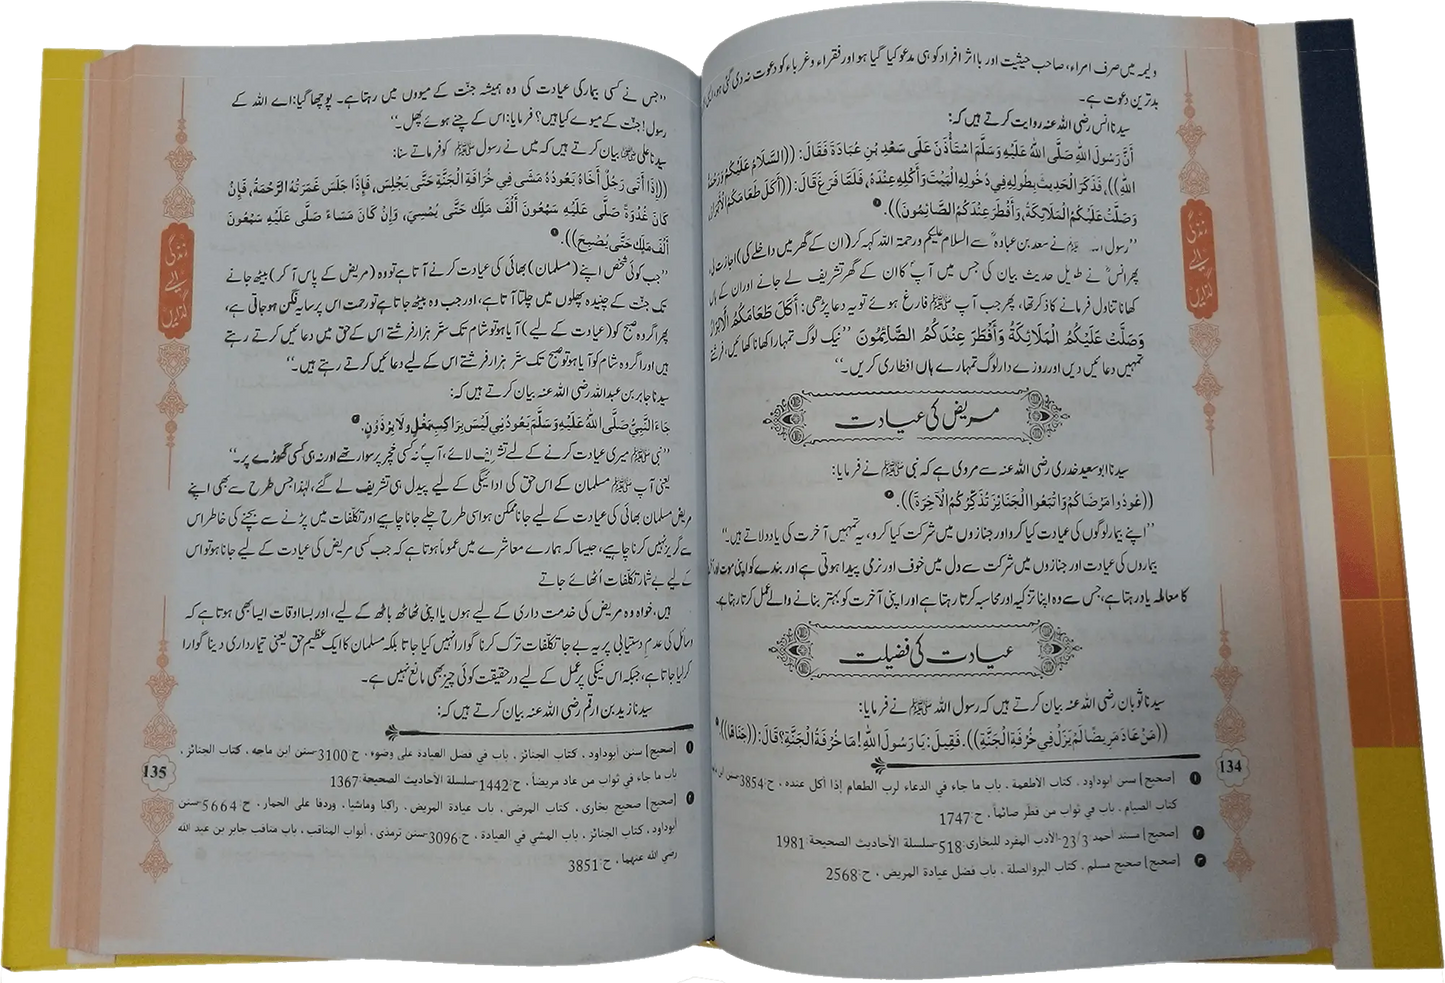 ولیمہ میں صرف امراء، صاحب حیثیت اور بااثر افراد کو ہی مدعو کیا گیا ہو اور فقراء و غرباء کو دعوت نہ دی گئی ہو،
بدترین دعوت ہے۔
سیدنا انس رضی اللہ عنہ روایت کرتے ہیں کہ:
أَنَّ رَسُولَ اللهِ صَلَّى اللهُ عَلَيْهِ وَسَلَّمَ اسْتَأْذَنَ عَلَى سَعْدِ بْنِ عُبَادَةَ فَقَالَ: ((السَّلَامُ عَلَيْكُمْ وَرَحْمَةُ
اللهِ))، فَذَكَرَ الْحَدِيثَ بِطُولِهِ فِي دُخُولِهِ الْبَيْتَ وَأَكْلِهِ عِنْدَهُ، فَلَمَّا فَرَغَ قَالَ: ((أَكَلَ طَعَامَكُمُ الْأَبْرَارُ،
وَصَلَّتْ عَلَيْكُمُ الْمَلَائِكَةُ، وَأَفْطَرَ عِنْدَكُمُ الصَّائِمُونَ)).
’’رسول اللہ ﷺ نے سعد بن عبادہؓ سے السلام علیکم ورحمۃ اللہ کہہ کر (ان کے گھر میں داخلے کی) اجازت لی،
پھر انسؓ نے طویل حدیث بیان کی جس میں آپؐ کا ان کے گھر تشریف لے جانے اور ان کے ہاں
کھانا تناول فرمانے کا ذکر تھا، پھر جب آپ ﷺ فارغ ہوئے تو یہ دعا پڑھی: أَكَلَ طَعَامَكُمُ الْأَبْرَارُ
وَصَلَّتْ عَلَيْكُمُ الْمَلَائِكَةُ وَأَفْطَرَ عِنْدَكُمُ الصَّائِمُونَ ’’نیک لوگ تمہارا کھانا کھائیں، فرشتے
تمہیں دعائیں دیں اور روزے دار لوگ تمہارے ہاں افطاری کریں۔‘‘
مریض کی عیادت
سیدنا ابو سعید خدری رضی اللہ عنہ سے مروی ہے کہ نبی ﷺ نے فرمایا:
((عُودُوا مَرْضَاكُمْ وَاتَّبِعُوا الْجَنَائِزَ تُذَكِّرُكُمُ الْآخِرَةَ)).
’’اپنے بیمار لوگوں کی عیادت کیا کرو اور جنازوں میں شرکت کیا کرو، یہ تمہیں آخرت کی یاد دلاتے ہیں۔‘‘
بیماروں کی عیادت اور جنازوں میں شرکت سے دل میں خوف اور نرمی پیدا ہوتی ہے اور بندے کو اپنی موت اور
کا معاملہ یاد رہتا ہے، جس سے وہ اپنا تزکیہ اور محاسبہ کرتا رہتا ہے اور اپنی آخرت کو بہتر بنانے والے عمل کرتا رہتا ہے۔
عیادت کی فضیلت
سیدنا ثوبان رضی اللہ عنہ بیان کرتے ہیں کہ رسول اللہ ﷺ نے فرمایا:
((مَنْ عَادَ مَرِيضًا لَمْ يَزَلْ فِي خُرْفَةِ الْجَنَّةِ)). فَقِيلَ: يَا رَسُولَ اللهِ! مَا خُرْفَةُ الْجَنَّةِ؟ قَالَ: ((جَنَاهَا)).
134
❶ [صحیح] سنن ابوداود، کتاب الاطعمة، باب ما جاء في الدعاء لرب الطعام إذا أكل عنده، ح:3854-سنن ابن ماجه
کتاب الصیام، باب في ثواب من فطّر صائماً، ح:1747
❷ [صحیح] مسند أحمد:23/3-الأدب المفرد للبخاری:518-سلسلة الأحاديث الصحيحة:1981
❸ [صحیح] صحیح مسلم، کتاب البر والصلة، باب فضل عیادة المریض، ح:2568
زندگی ایسے گذاریں
’’جس نے کسی بیمار کی عیادت کی وہ ہمیشہ جنّت کے میووں میں رہتا ہے۔ پوچھا گیا: اے اللہ کے
رسول! جنّت کے میوے کیا ہیں؟ فرمایا: اس کے چنے ہوئے پھل۔‘‘
سیدنا علی بیان کرتے ہیں کہ میں نے رسول ﷺ کو فرماتے سنا:
((إِذَا أَتَى رَجُلٌ أَخَاهُ يَعُودُهُ مَشَى فِي خُرَافَةِ الْجَنَّةِ حَتَّى يَجْلِسَ، فَإِذَا جَلَسَ غَمَرَتْهُ الرَّحْمَةُ، فَإِنْ
كَانَ غُدْوَةً صَلَّى عَلَيْهِ سَبْعُونَ أَلْفَ مَلَكٍ حَتَّى يُمْسِيَ، وَإِنْ كَانَ مَسَاءً صَلَّى عَلَيْهِ سَبْعُونَ
أَلْفَ مَلَكٍ حَتَّى يُصْبِحَ)).
’’جب کوئی شخص اپنے (مسلمان) بھائی کی عیادت کرنے آتا ہے تو وہ (مریض کے پاس آ کر) بیٹھ جانے
تک جنّت کے چنیدہ پھلوں میں چلتا آتا ہے، اور جب وہ بیٹھ جاتا ہے تو رحمت اس پر سایہ فگن ہو جاتی ہے،
پھر اگر وہ صبح کو (عیادت کے لیے) آیا ہو تو شام تک ستّر ہزار فرشتے اس کے حق میں دعائیں کرتے رہتے
ہیں اور اگر وہ شام کو آیا ہو تو صبح تک ستّر ہزار فرشتے اس کے لیے دعائیں کرتے رہتے ہیں۔‘‘
سیدنا جابر بن عبداللہ رضی اللہ عنہ بیان کرتے ہیں کہ:
جَاءَ النَّبِيُّ صَلَّى اللهُ عَلَيْهِ وَسَلَّمَ يَعُودُنِي لَيْسَ بِرَاكِبِ بَغْلٍ وَلَا بِرْذَوْنٍ.
’’نبی ﷺ میری عیادت کرنے کے لئے تشریف لائے، آپؐ نہ کسی خچر پر سوار تھے اور نہ ہی کسی گھوڑے پر۔‘‘
یعنی آپ ﷺ مسلمان کے اس حق کی ادائیگی کے لیے پیدل ہی تشریف لے گئے، لہٰذا جس طرح سے بھی اپنے
مریض مسلمان بھائی کی عیادت کے لیے جانا ممکن ہو اسی طرح چلے جانا چاہیے اور تکلفات میں پڑنے سے بچنے کی خاطر اس
سے گریز نہیں کرنا چاہیے، جیسا کہ ہمارے معاشرے میں عموماً ہوتا ہے کہ جب کسی مریض کی عیادت کے لیے جانا ہو تو اس
کے لیے بے شمار تکلفات اُٹھائے جاتے
ہیں، خواہ وہ مریض کی خدمت داری کے لیے ہوں یا اپنی ٹھاٹھ باٹھ کے لیے، اور بسا اوقات ایسا بھی ہوتا ہے کہ
وسائل کی عدم دستیابی پر یہ بے جا تکلفات ترک کرنا گوارا نہیں کیا جاتا بلکہ مسلمان کا ایک عظیم حق یعنی تیمارداری دینا گوارا
کر لیا جاتا ہے، جبکہ اس نیکی پر عمل کے لیے درحقیقت کوئی چیز بھی مانع نہیں ہے۔
سیدنا زید بن ارقم رضی اللہ عنہ بیان کرتے ہیں کہ:
135
❶ [صحیح] سنن ابوداود، کتاب الجنائز، باب في فضل العیادة علی وضوء، ح:3100-سنن ابن ماجه، کتاب الجنائز،
باب ما جاء في ثواب من عاد مریضاً، ح:1442-سلسلة الأحاديث الصحيحة:1367
❷ [صحیح] صحیح بخاری، کتاب المرضی، باب عیادة المریض، راکبا وماشیا، وردفا علی الحمار، ح:5664-سنن
أبوداود، کتاب الجنائز، باب المشي في العیادة، ح:3096-سنن ترمذی، أبواب المناقب، باب مناقب جابر بن عبد الله
رضي الله عنهما، ح:3851
زندگی ایسے گذاریں